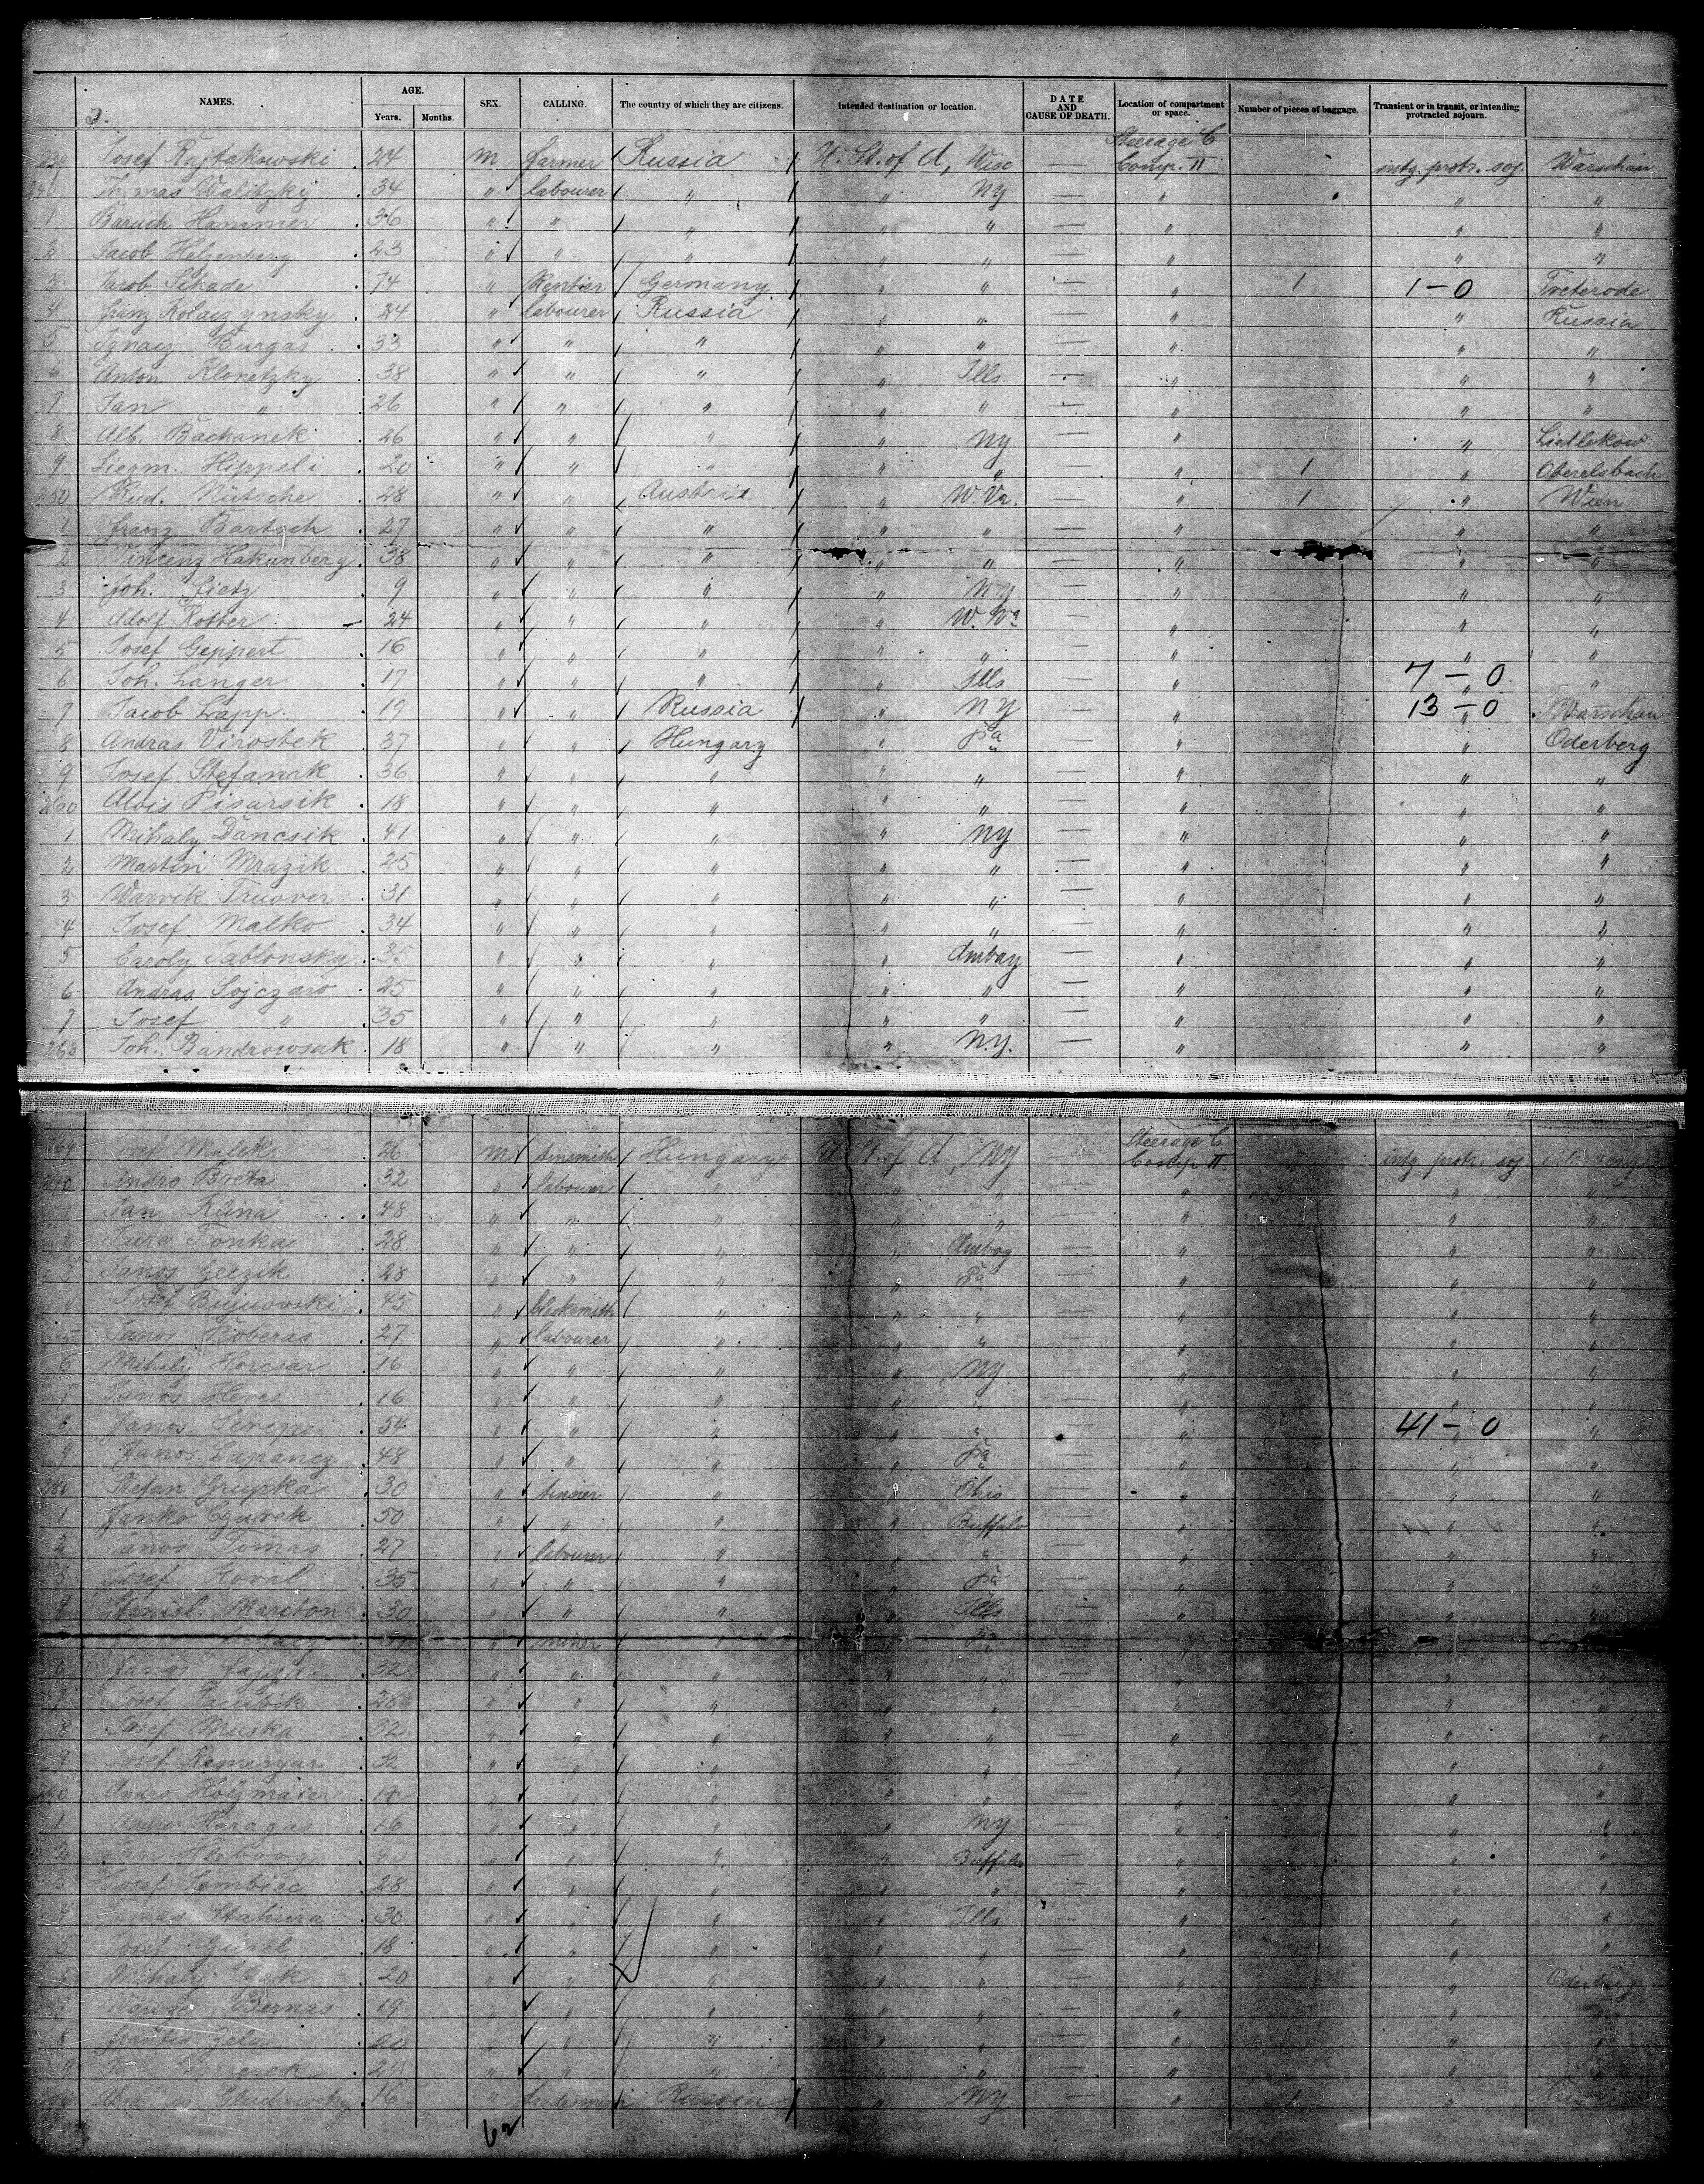 NAMES. AGE. Years. Months. SEX. CALLING. The country of which they are citizens. Intended destination or location. DATE AND CAUSE OF DEATH. Location of compartment or space. Number of pieces of baggage. Transient or in transit, or intending protracted sojourn.
239 Josef Rajtakowski 24 m farmer Russia U. St. of A, Wisc — Steerage C Comp. II intg. protr. soj. Warschau
240 Thomas Walitzky 34 " labourer " " NY — " " "
1 Baruch Hammer 36 " " " " " — " " "
2 Jacob Helzenberg 23 " " " " " — " " "
3 Jacob Schade 74 " Rentier Germany " " — " 1 1-0 Treterode
4 Franz Kolaczynsky 24 " labourer Russia " " — " " Russia
5 Ignacz Burgas 33 " " " " " — " " "
6 Anton Klonetzky 38 " " " " Ills — " " "
7 Jan " 26 " " " " " — " " "
8 Alb. Bachanek 26 " " " " NY — " " Siedlekow
9 Siegm. Hippeli 20 " " " " " — " 1 " Oberelsbach
250 Rud. Nütsche 28 " " Austria " W.Va. — " 1 " Wien
1 Franz Bartsch 27 " " " " " — " " "
2 Vincenz Hakunberg 38 " " " " " — " " "
3 Joh. Lietz 9 " " " " NY — " " "
4 Adolf Rotter 24 " " " " W. Va — " " "
5 Josef Geppert 16 " " " " " — " " "
6 Joh. Langer 17 " " " " Ills — " 7-0 "
7 Jacob Lapp. 19 " " Russia " NY — " 13-0 Warschau
8 Andras Virostek 37 " " Hungary " Pa — " " Oderberg
9 Josef Stefanak 36 " " " " " — " " "
260 Alois Pisarsik 18 " " " " " — " " "
1 Mihaly Dancsik 41 " " " " NY — " " "
2 Martin Mrazik 25 " " " " " — " " "
3 Warvik Truover 31 " " " " " — " " "
4 Josef Malko 34 " " " " " — " " "
5 Caroly Jablonsky 35 " " " " Ambay — " " "
6 Andras Sojczaro 25 " " " " " — " " "
7 Josef " 35 " " " " " — " " "
268 Joh. Bandrowsak 18 " " " " N.Y. — " " "
269 Josef Malek 26 m tinsmith Hungary U. St. of A, NY — Steerage C Comp II intg protr. soj
270 Andro Breta 32 " labourer " " " — " " "
Jan Kuna 48 " " " " " — " " "
2 Jure Tonka 28 " " " " Amboy — " " "
3 Janos Geczik 28 " " " " Pa — " " "
4 Josef Bujnovski 45 " blacksmith " " " — " " "
5 Janos Foberas 27 " labourer " " " — " " "
6 Mihaly Horcsar 16 " " " " NY — " " "
7 Janos Heves 16 " " " " " — " " "
8 Janos 54 " " " " " — " 41-0 "
9 Janos Lupancz 48 " " " " Pa — " " "
280 Stefan Grupka 30 " tinner " " Ohio — " " "
1 Janko Czurek 50 " " " " Buffalo — " " "
2 Janos Tomas 27 " labourer " " " — " " "
3 Josef Koval 35 " " " " Pa — " " "
4 Daniel Mariton 30 " " " " Ills — " " "
" miner " " Pa — "
6 Janos 32 " " " " " — " " "
7 Josef Jacubik 28 " " " " " — " " "
8 Josef Hruska 32 " " " " " — " " "
9 Josef Kemenyar 32 " " " " " — " " "
290 Andro Holzmaier 17 " " " " " — " " "
1 Andro Haragas 16 " " " " NY — " " "
2 Jan " " " " Buffalo — " " "
3 Josef Sembiec 28 " " " " " — " " "
4 Tomas Stahura 30 " " " " Ills — " " "
5 Josef Gusel 18 " " " " " — " " "
6 Mihaly 20 " " " " " — " " Oderberg
7 Bernas 19 " " " " " — " " "
8 Zela 20 " " " " " — " " "
9 24 " " " " " — " " "
16 " Russia " NY — " 1 "
62